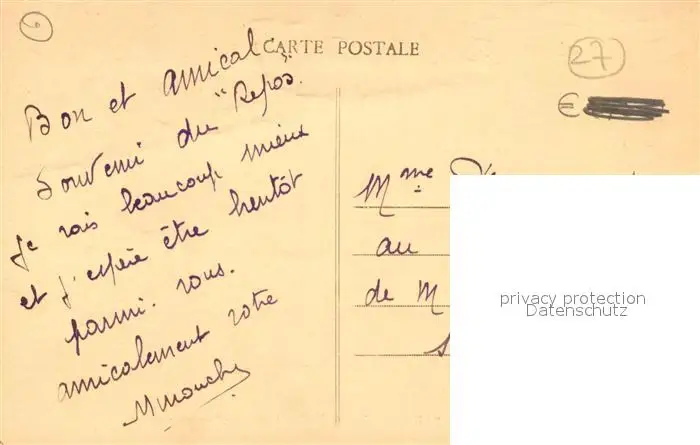 CARTE POSTALE
27
€
Bon et amical
Souvenir du "Repos".
Je vais beaucoup mieux
et j'espère être bientôt
parmi vous.
amicalement votre
Mme
au
de M
privacy protection
Datenschutz